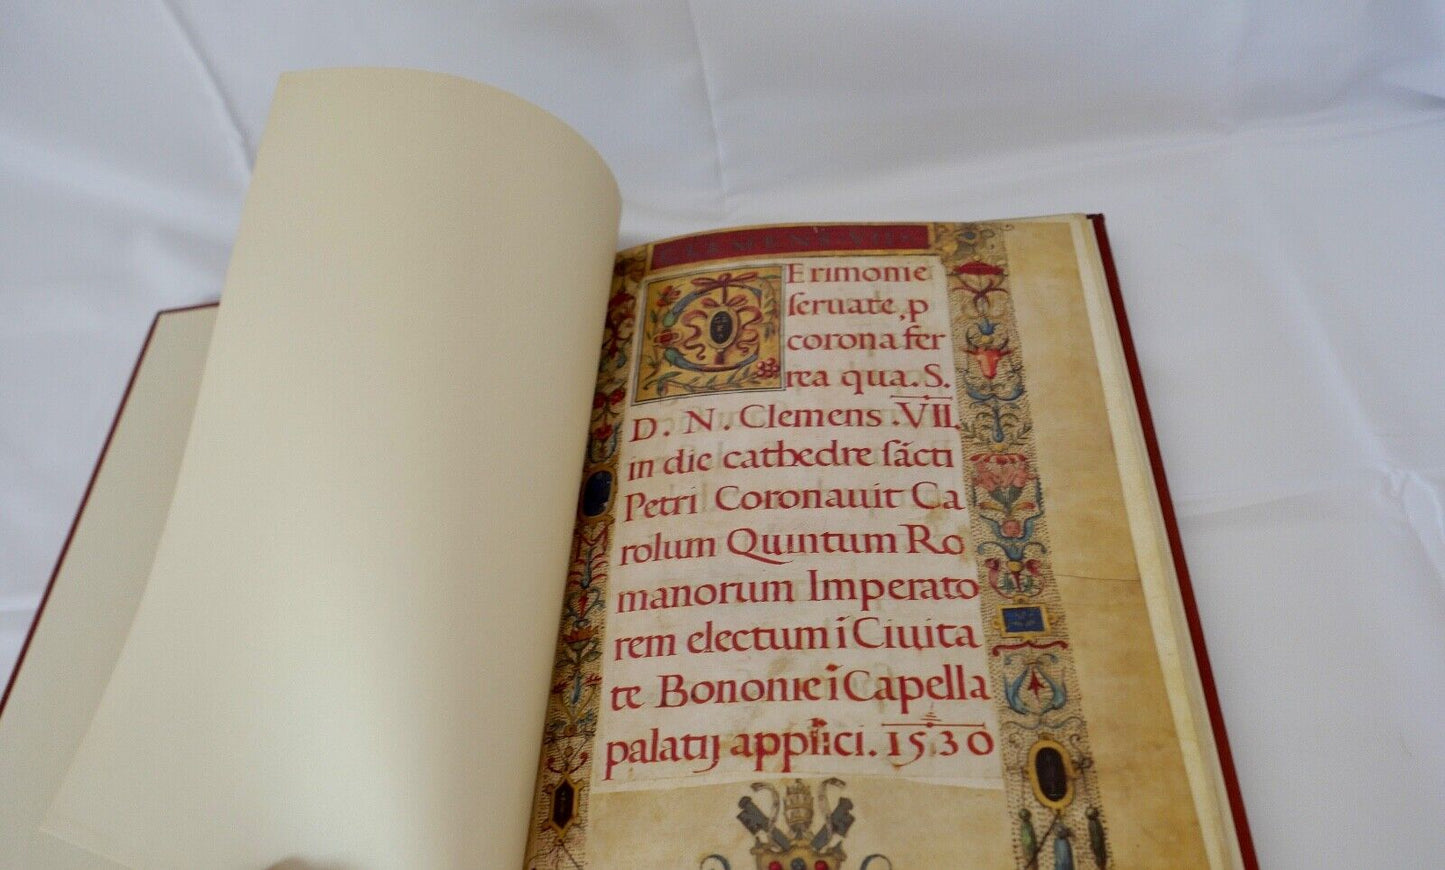 CLEMENS VII
CErimonie
ſeruate, p
corona fer
rea qua. S.
D. N. Clemens .VII.
in die cathedre ſācti
Petri Coronauit Ca
rolum Quintum Ro
manorum Imperato
rem electum ī Ciuita
te Bononie ī Capella
palatij applici. 1530